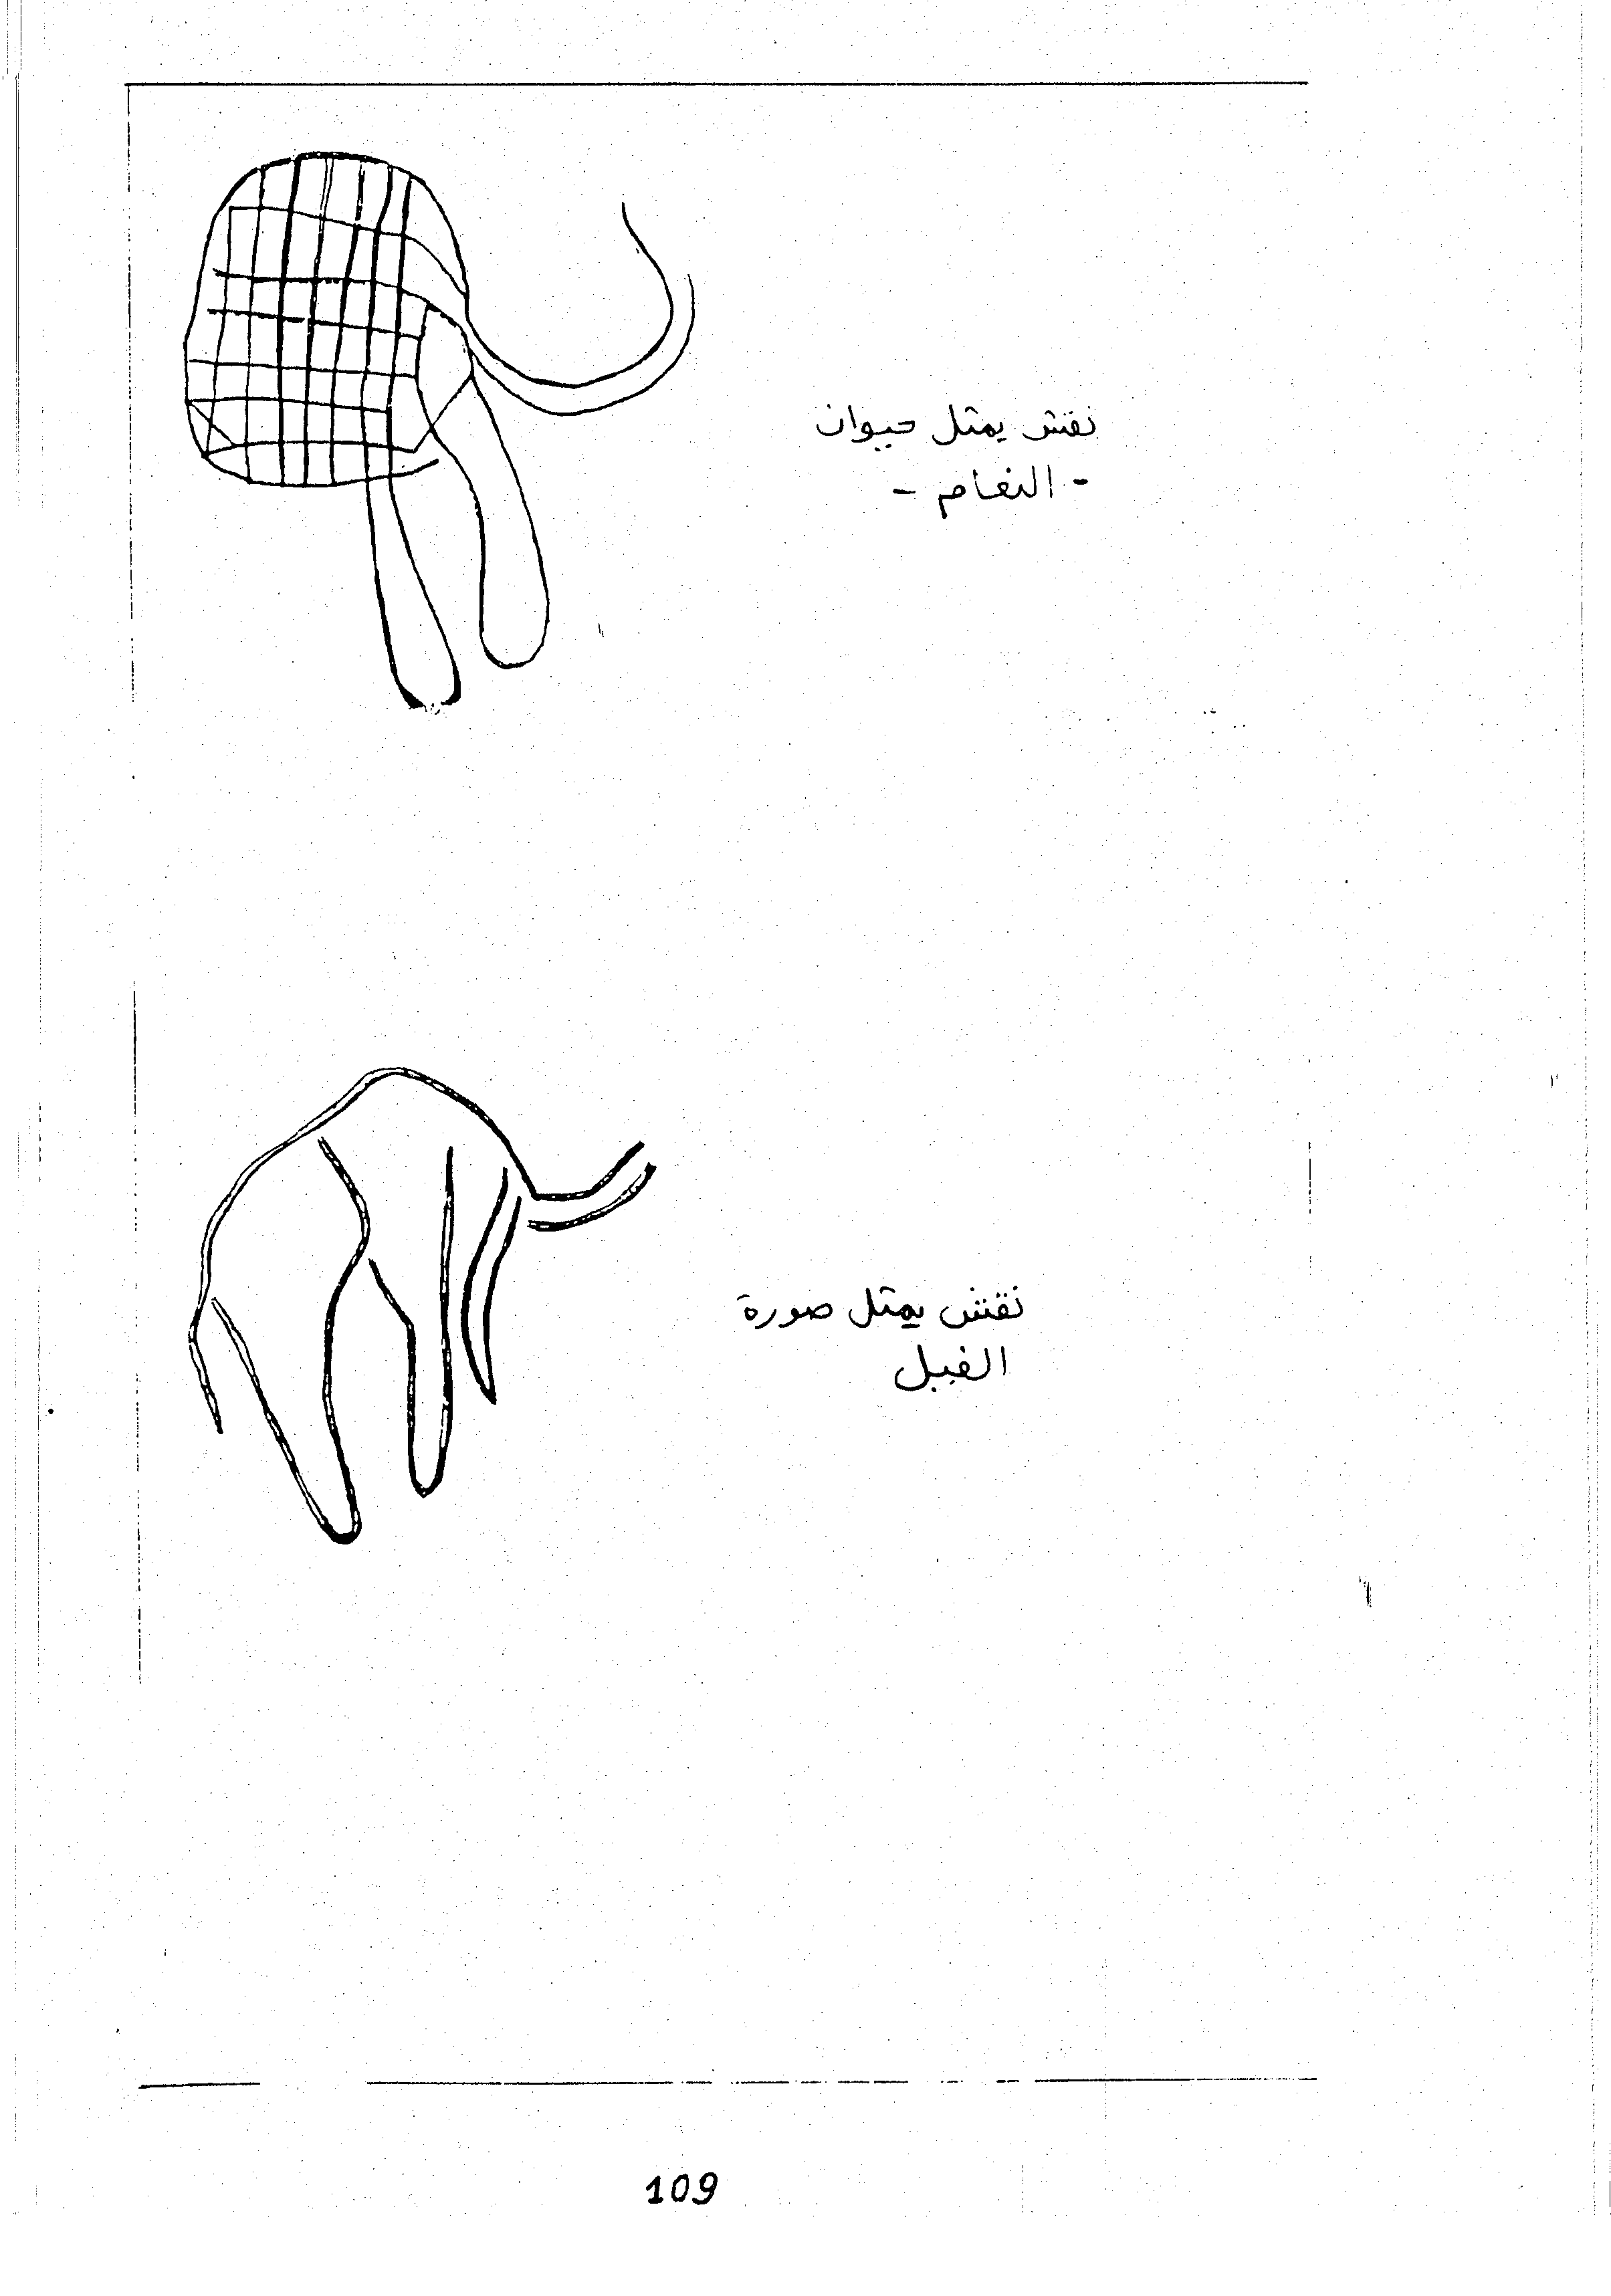 نقش يمثل حيوان
- النعام -
نقش يمثل صورة
الفيل
109